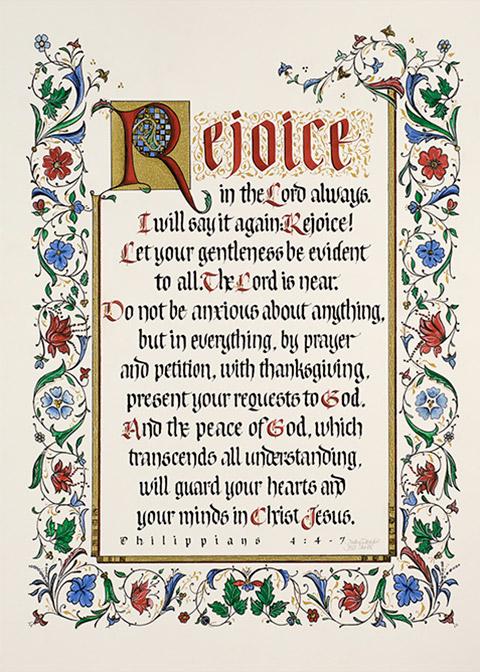 Rejoice
in the Lord always.
I will say it again: Rejoice!
Let your gentleness be evident
to all. The Lord is near.
Do not be anxious about anything,
but in everything, by prayer
and petition, with thanksgiving,
present your requests to God.
And the peace of God, which
transcends all understanding,
will guard your hearts and
your minds in Christ Jesus.
Philippians 4:4-7